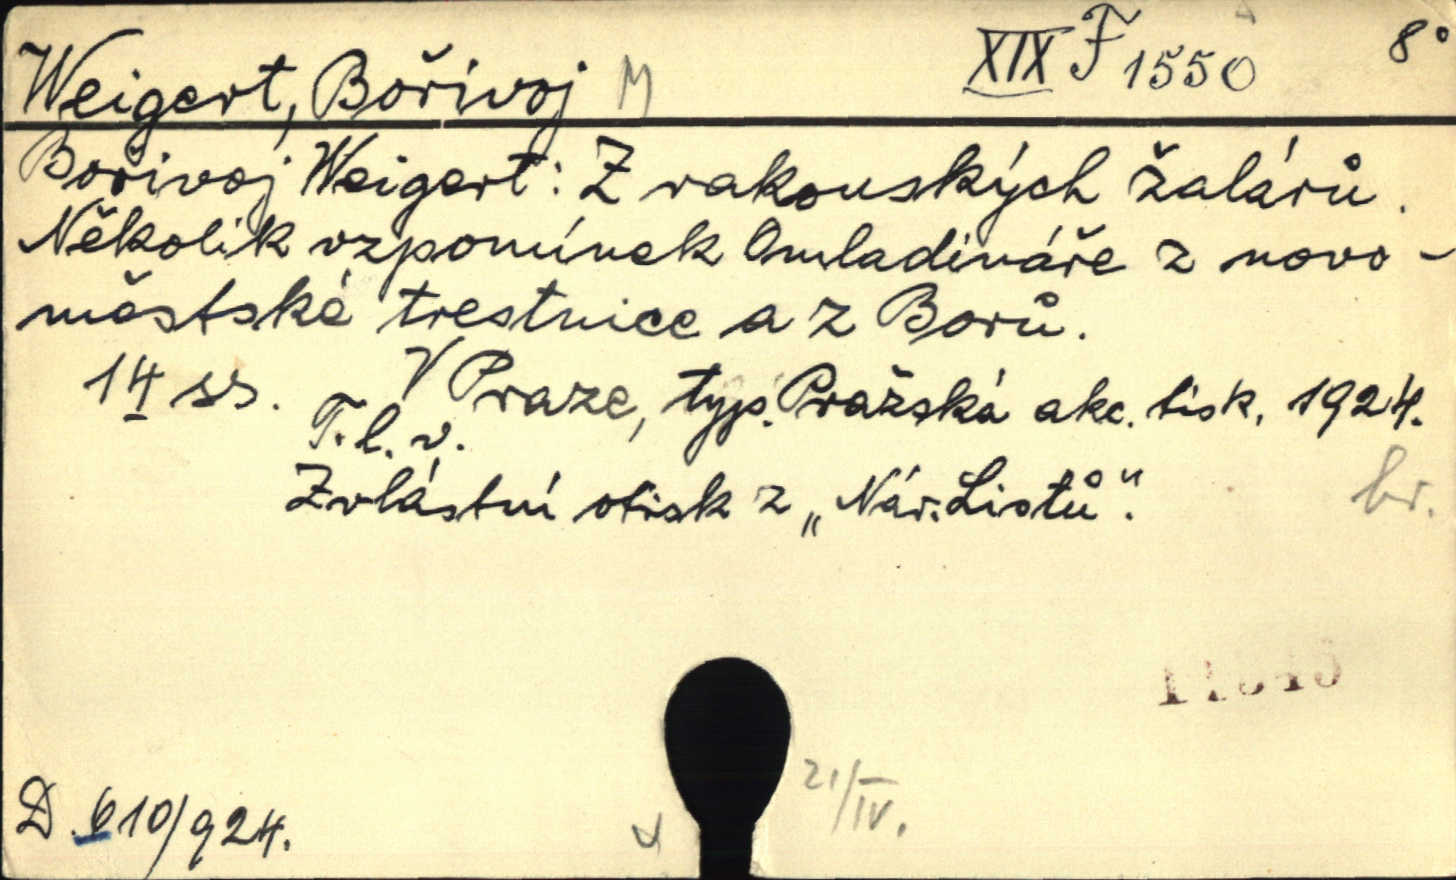 Weigert, Bořivoj M XIX F 1550 8°
Bořivoj Weigert: Z rakouských žalářů.
Několik vzpomínek Omladináře z novo-
městské trestnice a z Borů.
14 ss. V Praze, typ. Pražská akc. tisk. 1924.
T. l. v.
Zvláštní otisk z „Nár. Listů".
br.
D. 610/924.
21/IV.